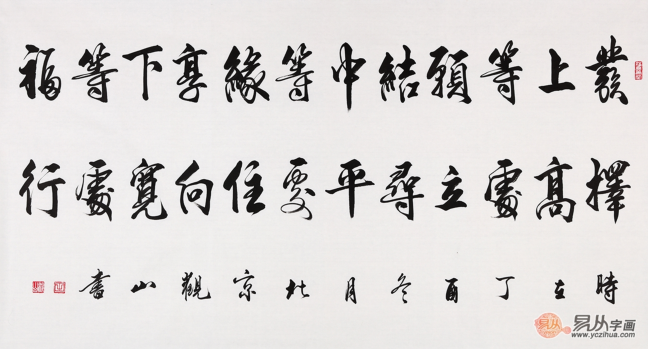 發上等願結中等緣享下等福
擇高處立尋平處住向寬處行
時在丁酉冬月北京觀山書
易从字画
www.yczihua.com